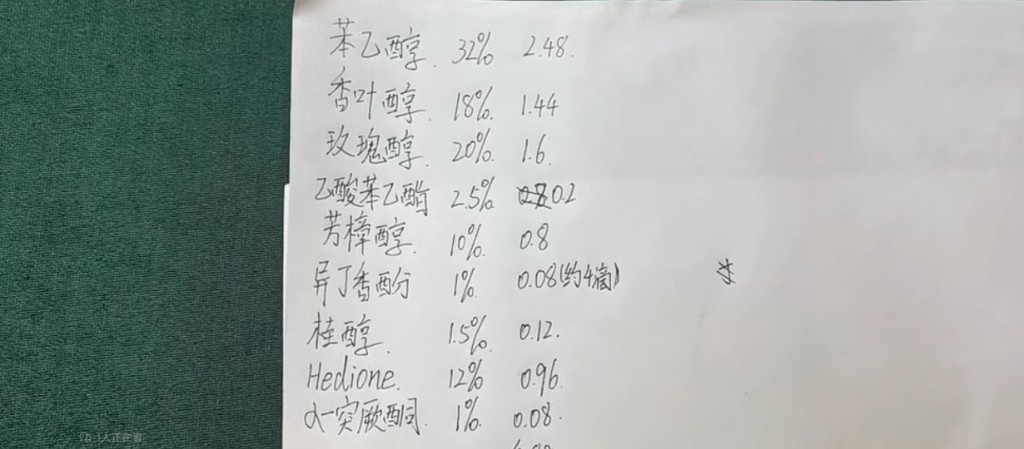 苯乙醇. 32% 2.48.
香叶醇. 18%. 1.44
玫瑰醇. 20%. 1.6.
乙酸苯乙酯 2.5% 0.2
芳樟醇. 10%. 0.8
异丁香酚 1%. 0.08(约4滴)
桂醇. 1.5%. 0.12.
Hedione. 12% 0.96.
α-突厥酮. 1%. 0.08.